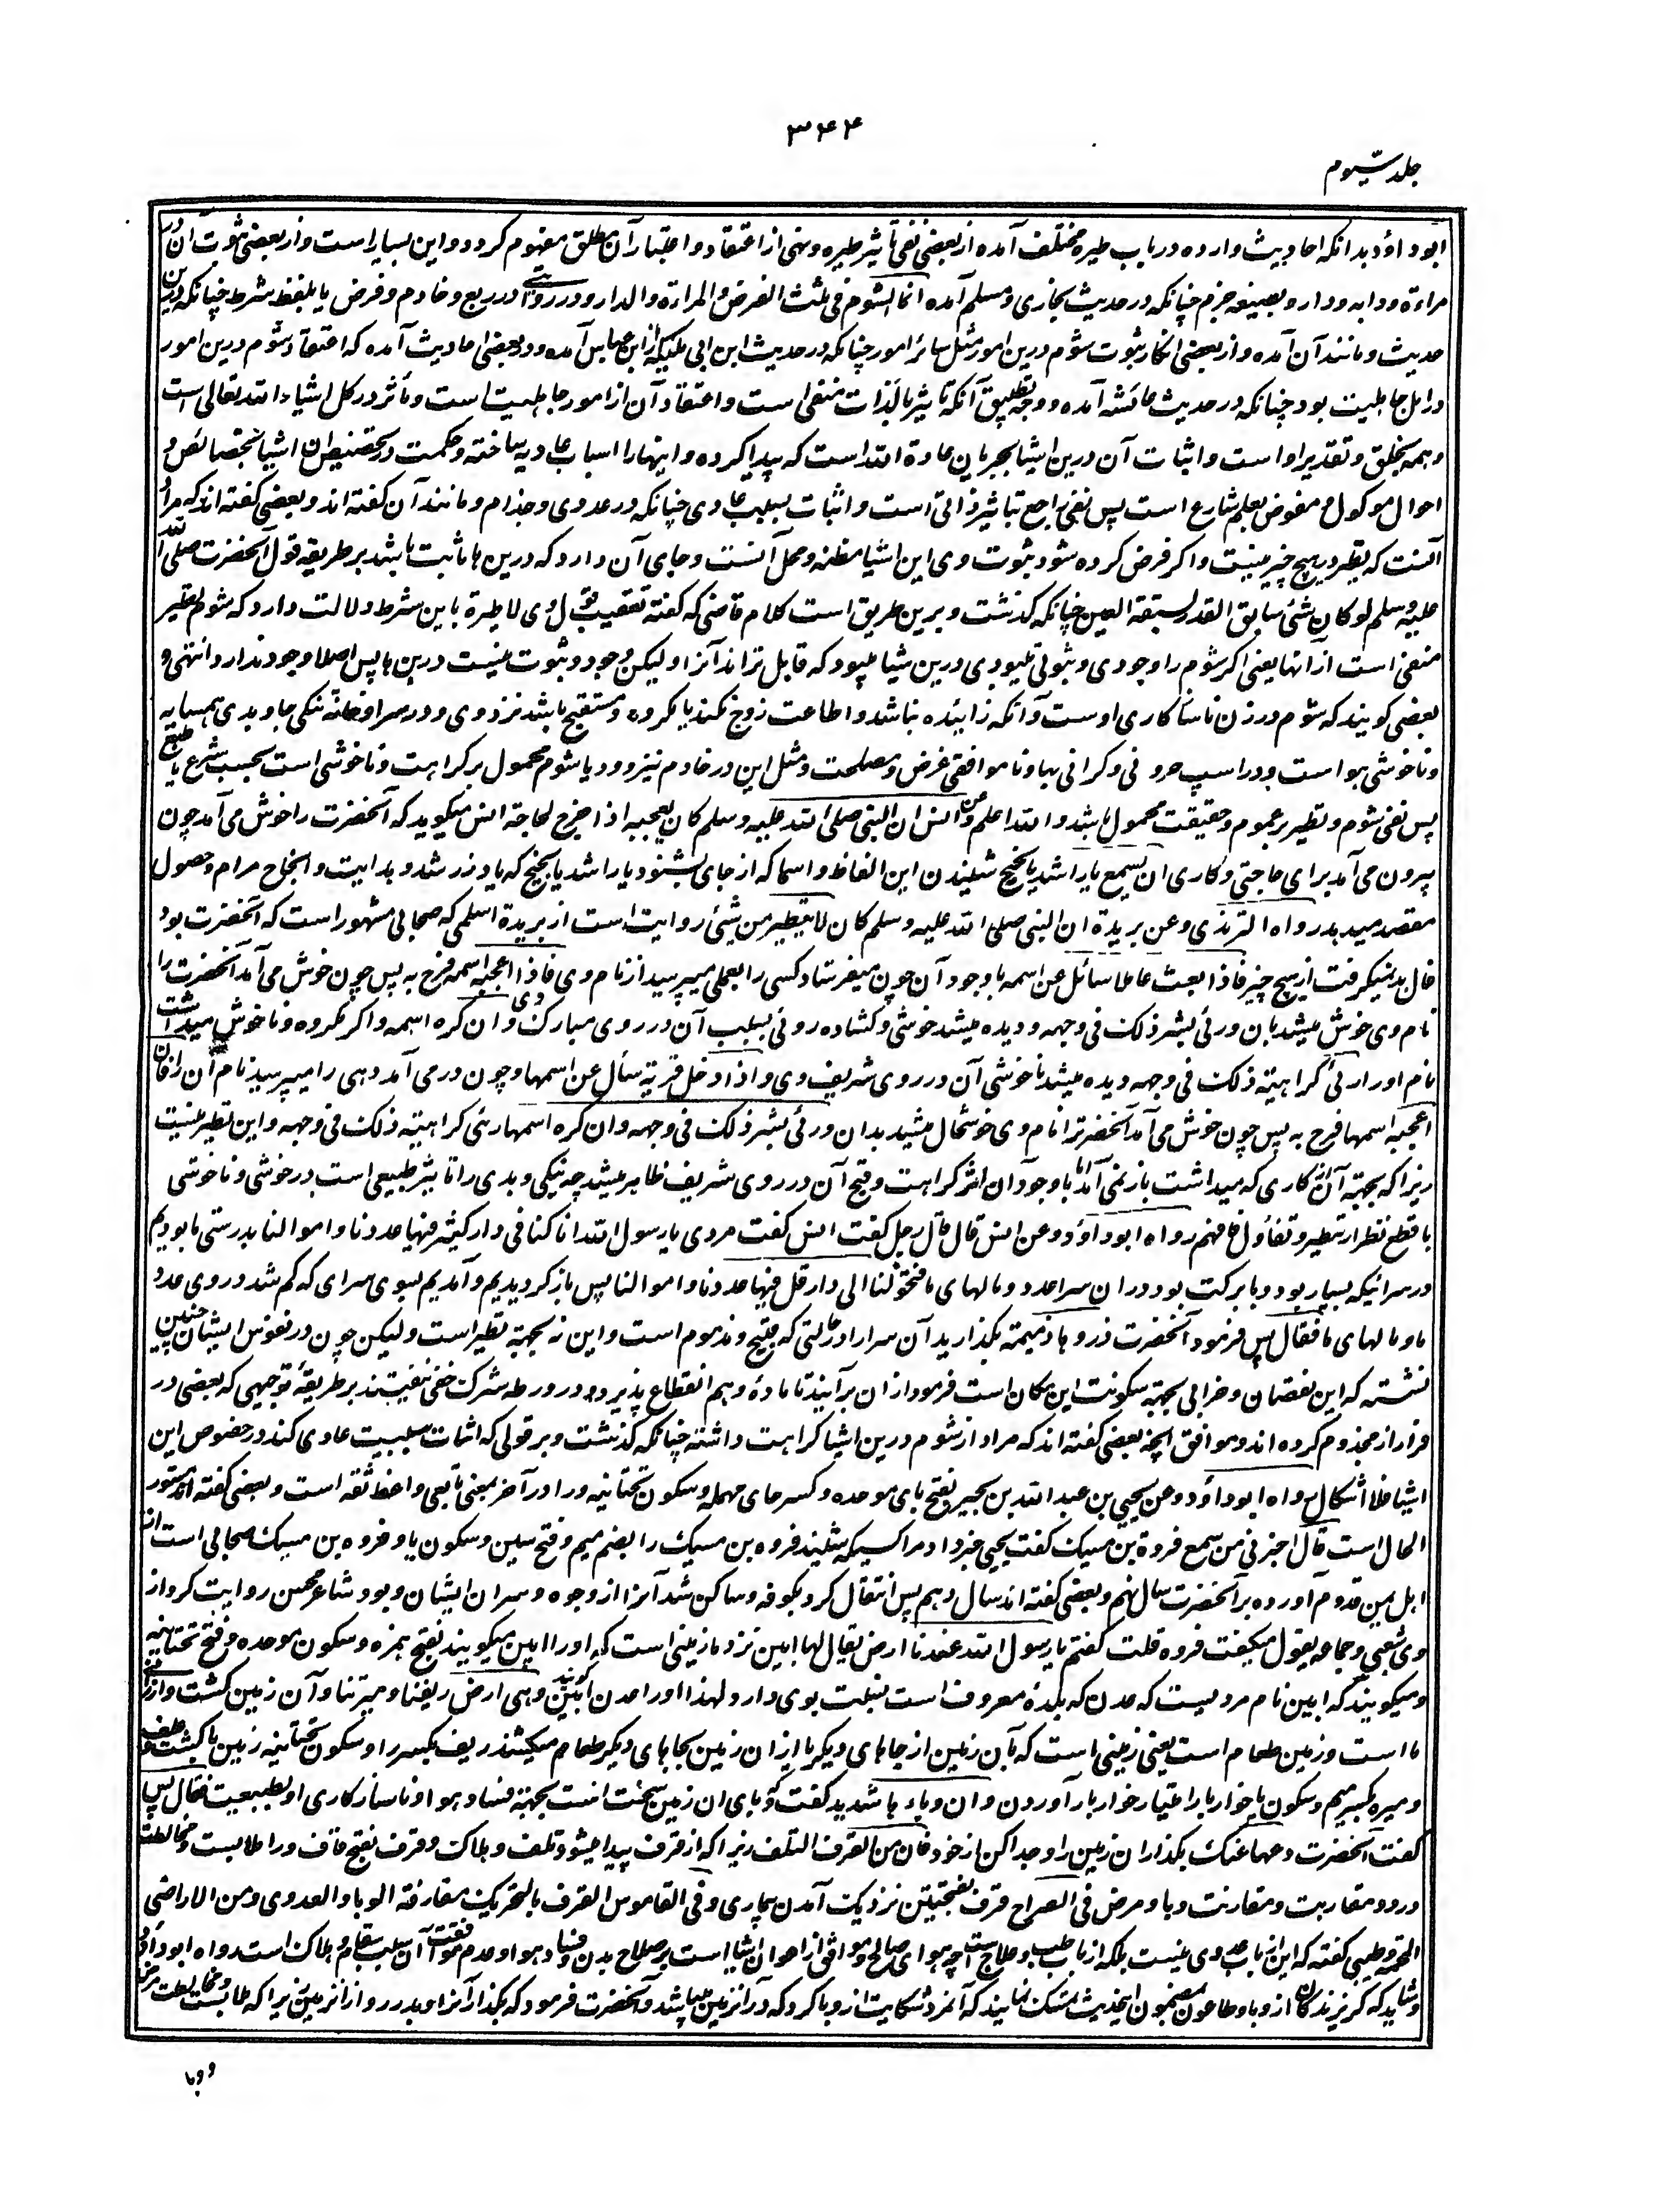 ۳۴۴
جلد سیوم
ابوداؤد بدانکه احادیث وارده در باب طیره مختلف آمده از بعضی نفی تاثیر طیره و نهی از اعتقاد و اعتبار آن مطلق مفهوم گردد و این بسیار است و از بعضی ثبوت آن در
مراءة و دابه و دار و بصیغه جزم چنانکه در حدیث بخاری و مسلم آمده انما الشوم فی ثلث الفرس و المراءة و الدار و در روایتی در ربع و خادم و فرس یا بلفظ شرط چنانکه درین
حدیث و مانند آن آمده و از بعضی انکار ثبوت شوم درین امور مثل سائر امور چنانکه در حدیث ابن ابی ملیکه از ابن عباس آمده و در بعضی احادیث آمده که اعتقاد شوم درین امور
در اهل جاهلیت بود چنانکه در حدیث عائشه آمده و وجه تطبیق آنکه تاثیر بالذات منفی است و اعتقاد آن از امور جاهلیت است و مأثر در کل اشیاء الله تعالی است
و همه بخلق و تقدیر او است و اثبات آن درین اشیا بجریان عادة الله است که پیدا کرده و اینها را اسباب عادیه ساخته و حکمت در تخصیص این اشیا بخصائص و
احوال موکول و مفوض بعلم شارع است پس نفی راجع بتاثیر ذاتی است و اثبات بسبب عادی چنانکه در عدوی و جذام و مانند آن گفته اند و بعضی گفته اند که مراد
آنست که تطیر در هیچ چیز نیست و اگر فرض کرده شود ثبوت وی این اشیا مظنه و محل آنست و جای آن دارد که درین ها ثابت باشد بر طریقه قول آنحضرت صلی الله
علیه و سلم لو کان شئ سابق القدر لسبقه العین چنانکه گذشت و برین طریق است کلام قاضی که گفته تعقیب قول وی لا طیرة باین شرط دلالت دارد که شوم تطیر
منفی است از آنها یعنی اگر شوم را وجودی و ثبوتی میبودی درین اشیا میبود که قابل تر اند آنرا و لیکن وجود و ثبوت نیست درین ها پس اصلا وجود ندارد انتهی و
بعضی گویند که شوم در زن ناسازگاری اوست و آنکه زاینده نباشد و اطاعت زوج نکند یا مکروه و مستقبح باشد نزد وی و در سرا و خانه تنگی جا و بدی همسایه
و ناخوشی هوا است و در اسپ حرونی و گرانی بها و ناموافقی غرض و مصلحت و مثل این در خادم نیز و در یا شوم محمول بر کراهت و ناخوشی است بحسب شرع یا طبع
پس نفی شوم و تطیر بر عموم و حقیقت محمول باشد و الله اعلم وعن انس ان النبی صلی الله علیه و سلم کان یعجبه اذا خرج لحاجة انس میگوید که آنحضرت را خوش می آمد چون
بیرون می آمد برای حاجتی و کاری ان یسمع یا راشد یا نجیح شنیدن این الفاظ و اسما که از جای بشنود یا راشد یا نجیح که یاد ز رشد و هدایت و انجاح مرام و حصول
مقصد میدهد رواه الترمذی وعن بریدة ان النبی صلی الله علیه و سلم کان لا یتطیر من شئ روایت است از بریدة اسلمی که صحابی مشهور است که آنحضرت بود
فال بد نمیگرفت از هیچ چیز فاذا بعث عاملا سائل عن اسمه با وجود آن چون میفرستاد کسی را بعملی میپرسید از نام وی فاذا اعجبه اسمه فرح به پس چون خوش می آمد آنحضرت را
نام وی خوش میشد بان ورئی بشر ذلک فی وجهه و دیده میشد خوشی و کشاده روئی بسبب آن در روی مبارک وی و ان کره اسمه و اگر مکروه و ناخوش میداشت
نام او را رئی کراهیته ذلک فی وجهه دیده میشد ناخوشی آن در روی شریف وی و اذا دخل قریة سأل عن اسمها و چون در می آمد دهی را میپرسید نام آن را فان
اعجبه اسمها فرح به پس چون خوش می آمد آنحضرت را نام وی خوشحال میشد بدان ورئی بشر ذلک فی وجهه و ان کره اسمها رئی کراهیته ذلک فی وجهه و این تطیر نیست
زیرا که بجهته آن از کاری که میداشت باز نمی آمد اما با وجود آن اثر کراهت و قبح آن در روی شریف ظاهر میشد چه نیکی و بدی را تاثیر طبیعی است در خوشی و ناخوشی
با قطع نظر از تطیر و تفاؤل فافهم رواه ابوداؤد وعن انس قال قال رجل گفت انس گفت مردی یا رسول الله انا کنا فی دار کثیر فیها عددنا و اموالنا بدرستی ما بودیم
در سرائیکه بسیار بود و با برکت بود در ان سرا عدد و مالهای ما فتحولنا الی دار قل فیها عددنا و اموالنا پس باز گردیدیم و آمدیم بسوی سرای که کم شد در وی عدد
ما و مالهای ما فقال پس فرمود آنحضرت ذروها ذمیمة بگذارید آن سرا را در حالتی که قبیح و مذموم است و این نه بجهته تطیر است و لیکن چون در نفوس ایشان چنین
نشسته که این نقصان و خرابی بجهته سکونت این مکان است فرمود از ان برآیند تا ماده وهم انقطاع پذیرد و در ورطه شرک خفی نیفتند بر طریقه توجیهی که بعضی در
فرار از مجذوم کرده اند و موافق آنچه بعضی گفته اند که مراد از شوم درین اشیا کراهت داشته چنانکه گذشت و بر قولی که اثبات سببیت عادی کند در خصوص این
اشیا فلا اشکال رواه ابوداؤد وعن یحیی بن عبد الله بن بحیر بفتح بای موحده و کسر حای مهمله و سکون تحتانیه و را در آخر بمعنی تابعی واعظ ثقه است و بعضی گفته اند مستور
الحال است قال اخبرنی من سمع فروة بن مسیک گفت یحیی خبر داد مرا کسیکه شنید فروه بن مسیک را بضم میم و فتح سین و سکون یا و فروه بن مسیک صحابی است از
اهل یمن قدوم آورده بر آنحضرت سال نهم و بعضی گفته اند سال دهم پس انتقال کرد بکوفه و ساکن شد آنرا از وجوه و سران ایشان و بود شاعر محسن روایت کرد از
وی شعبی و جماعه یقول میگفت فروه قلت گفتم یا رسول الله عندنا ارض یقال لها ابین نزد ما زمینی است که او را ابین میگویند بفتح همزه و سکون موحده و فتح تحتانیه
و میگویند که ابین نام مردیست که عدن که بلده معروف است نسبت بوی دارد و لهذا او را عدن ابین گویند وهی ارض ریفنا و میرتنا و آن زمین کشت و ارزانی
ما است و زمین طعام است یعنی زمینی است که بآن زمین از جاهای دیگر یا از ان زمین بجاهای دیگر طعام میکشند ریف بکسر را و سکون تحتانیه زمین با کشت و علف
و میره بکسر میم و سکون یا خواربار امتیار خواربار آوردن و ان وباء ها شدید گفت و وبای ان زمین سخت است بجهته فساد هوا و ناسازگاری او بطبیعت فقال پس
گفت آنحضرت دعها عنک بگذار ان زمین را و جدا کن از خود فان من القرف التلف زیرا که از قرف پیدا میشود تلف و هلاک و قرف بفتح قاف و را ملابست و مخالطت
و درود مقاربت و مقارنت و با و مرض فی الصراح قرف بفتحتین نزدیک آمدن بیماری و فی القاموس القرف بالتحریک مقارفة الوبا و العدوی و من الاراضی
المحمة و طیبی گفته که این از باب عدوی نیست بلکه از باب طب و علاج است چه هوای صالح و موافق از اهوان اشیا است بر صلاح بدن و فساد هوا و عدم موافقت آن سبب سقام و هلاک است رواه ابوداؤد
و شاید که گریزندگان از وبا و طاعون بمضمون اینحدیث تمسک نمایند که آنمرد شکایت از وبا کرد که در آنزمین میباشد و آنحضرت فرمود که بگذار آنرا و بدر رو از انزمین زیرا که ملابست و مخالطت مرض
و وبا